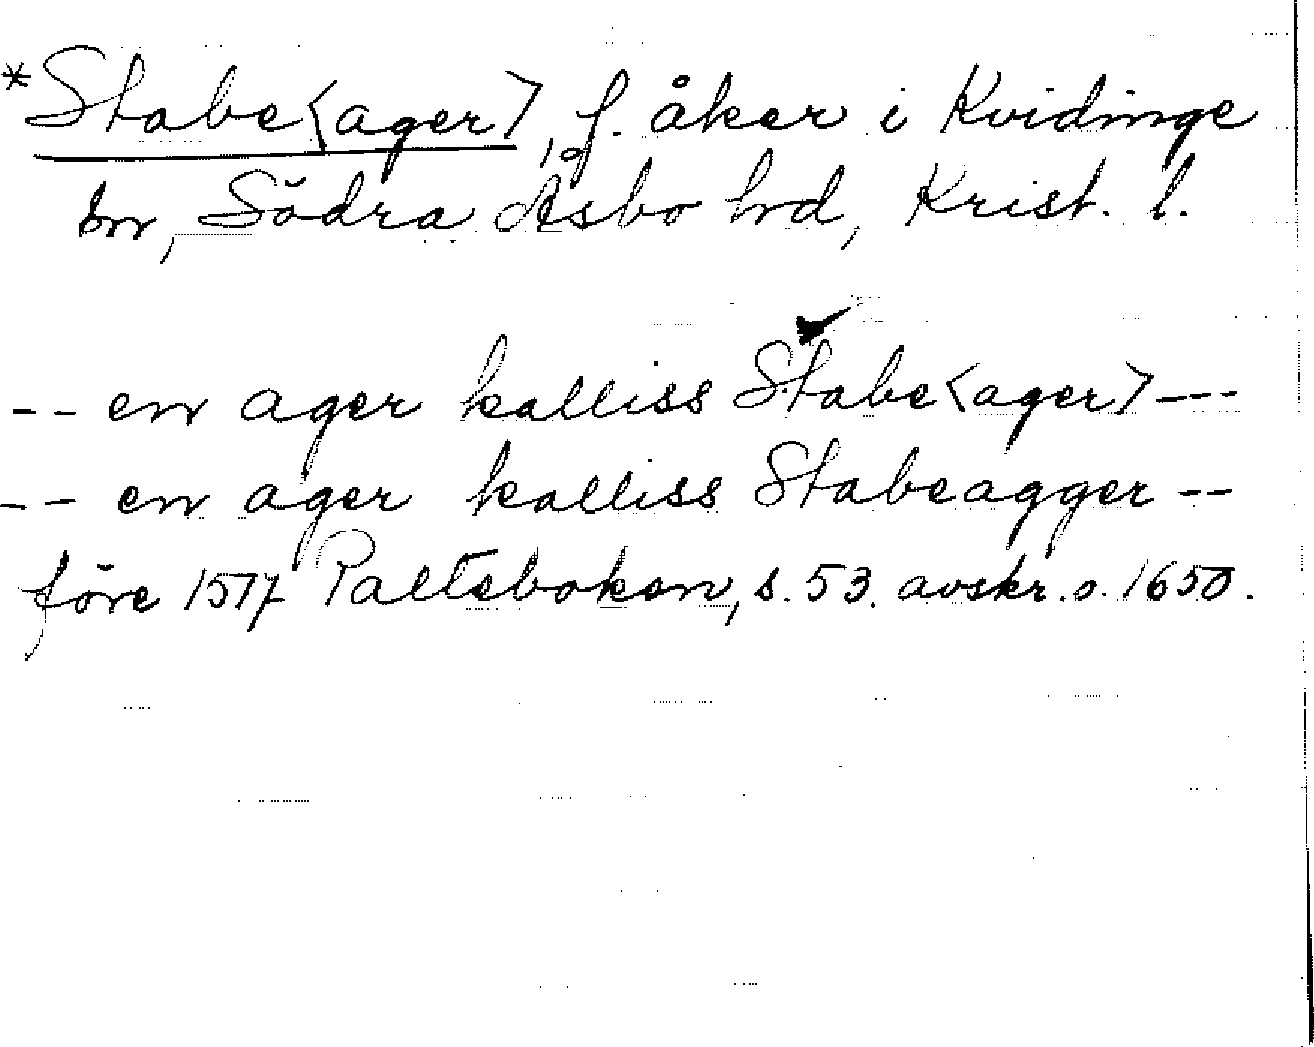 *Stabe<ager>, f. åker i Kvidinge
sn, Södra Åsbo hd, Krist. l.
-- en ager kalliss Stabe<ager> ---
-- en ager kalliss Stabeagger --
före 1517 Palteboken, s. 53. avskr. o. 1650.